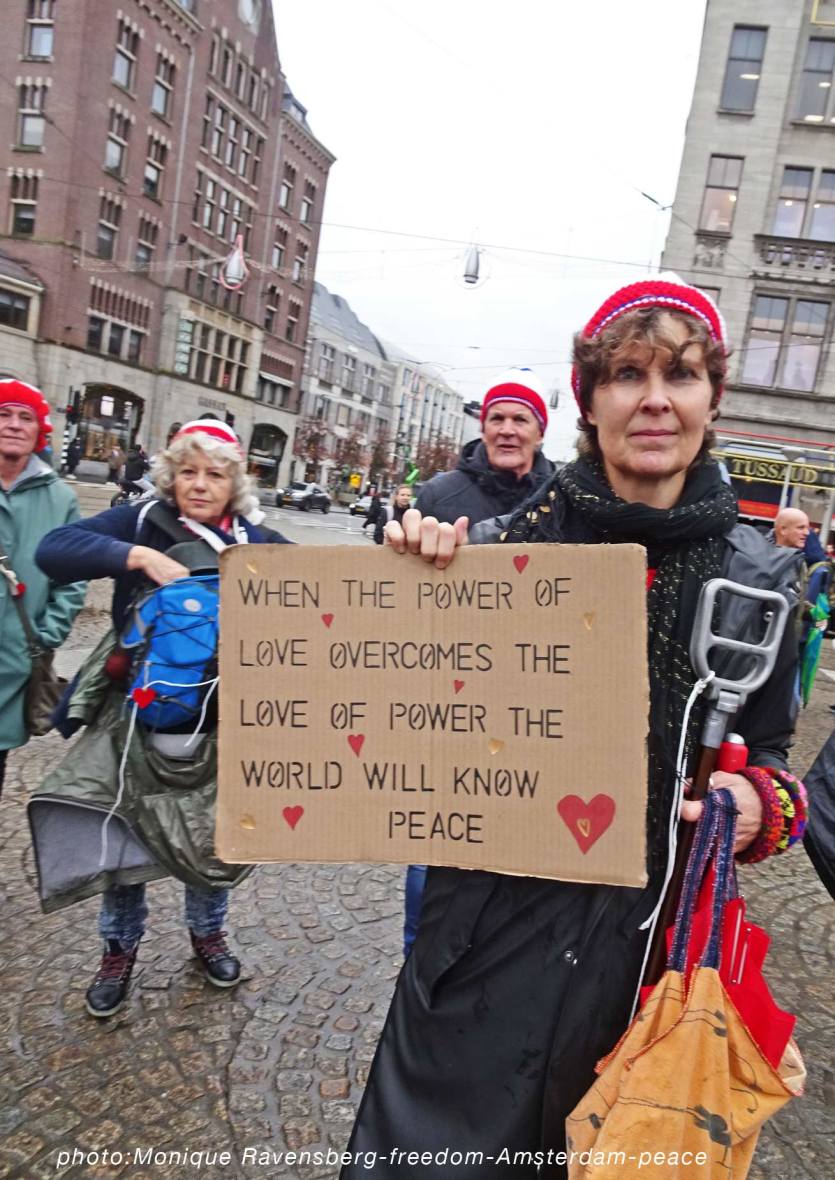 TUSSAUD
WHEN THE POWER OF
LOVE OVERCOMES THE
LOVE OF POWER THE
WORLD WILL KNOW
PEACE
photo:Monique Ravensberg-freedom-Amsterdam-peace